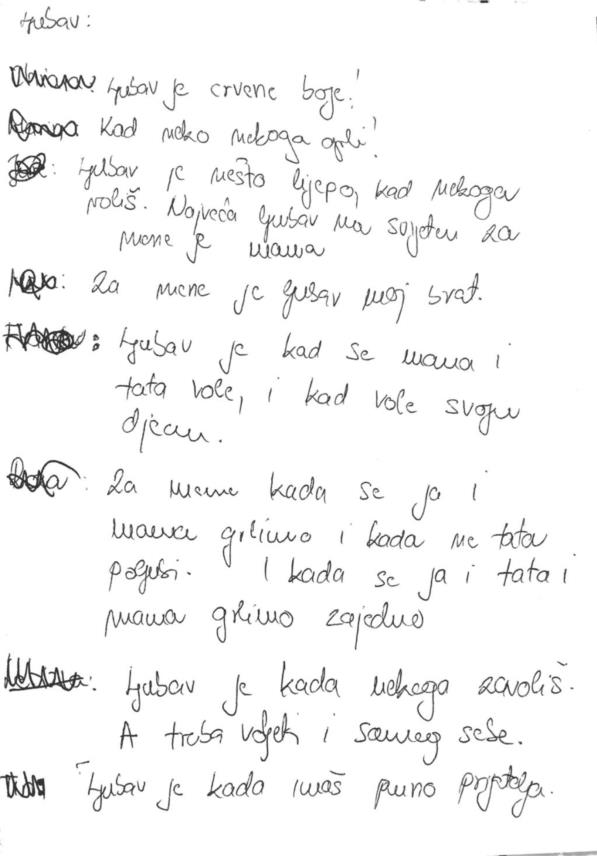 Ljubav:
Ljubav je crvene boje!
Kad neko nekoga grli!
: Ljubav je nešto lijepo, kad nekoga
voliš. Najveća ljubav na svijetu za
mene je mama
: Za mene je ljubav moj brat.
: Ljubav je kad se mama i
tata vole, i kad vole svoju
djecu.
: Za mene kada se ja i
mama grlimo i kada me tata
poljubi. I kada se ja i tata i
mama grlimo zajedno
: Ljubav je kada nekoga zavoliš.
A treba voljeti i samog sebe.
Ljubav je kada imaš puno prijatelja.